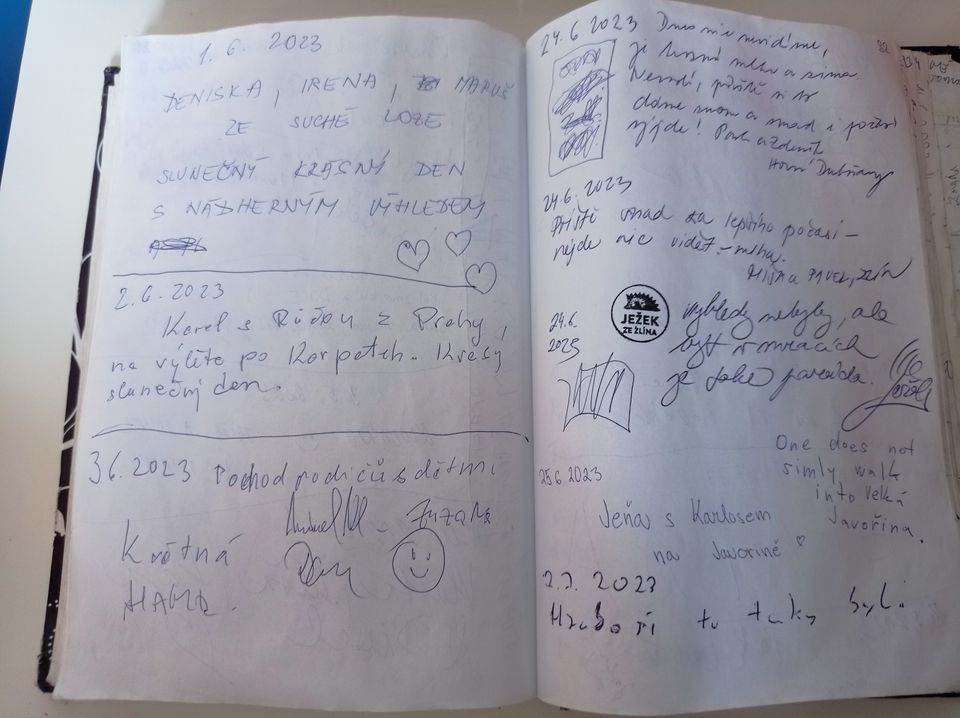 1. 6. 2023
DENISKA, IRENA, MARUŠ
ZE SUCHÉ LOZE
SLUNEČNÝ KRÁSNÝ DEN
S NÁDHERNÝM VÝHLEDEM
2. 6. 2023
Karel s Růžou z Prahy,
na výlitě po Karpatch. Kresy
slunečný den.
3.6. 2023 Pochod rodičů s dětmi
Zuzana
Květná
24.6. 2023 Dnes nic nevidíme,
je hrozná mlha a zima.
Nevadí, příště si to
dáme znova a snad i počasí
vyjde! a Zdeněk
Horní Dubňany
24.6. 2023
Příště snad za lepšího počasí –
nejde nic vidět – mlha.
MÍŠA a PAVEL, ZLÍN
24.6.
2023
JEŽEK
ZE ZLÍNA
výhledy nebyly, ale
být v mracích
je také paráda.
One does not
simly walk
into Velká
Javořina.
25.6 2023
Jeňa s Karlosem
na Javorině
2.7. 2023
tu taky byli